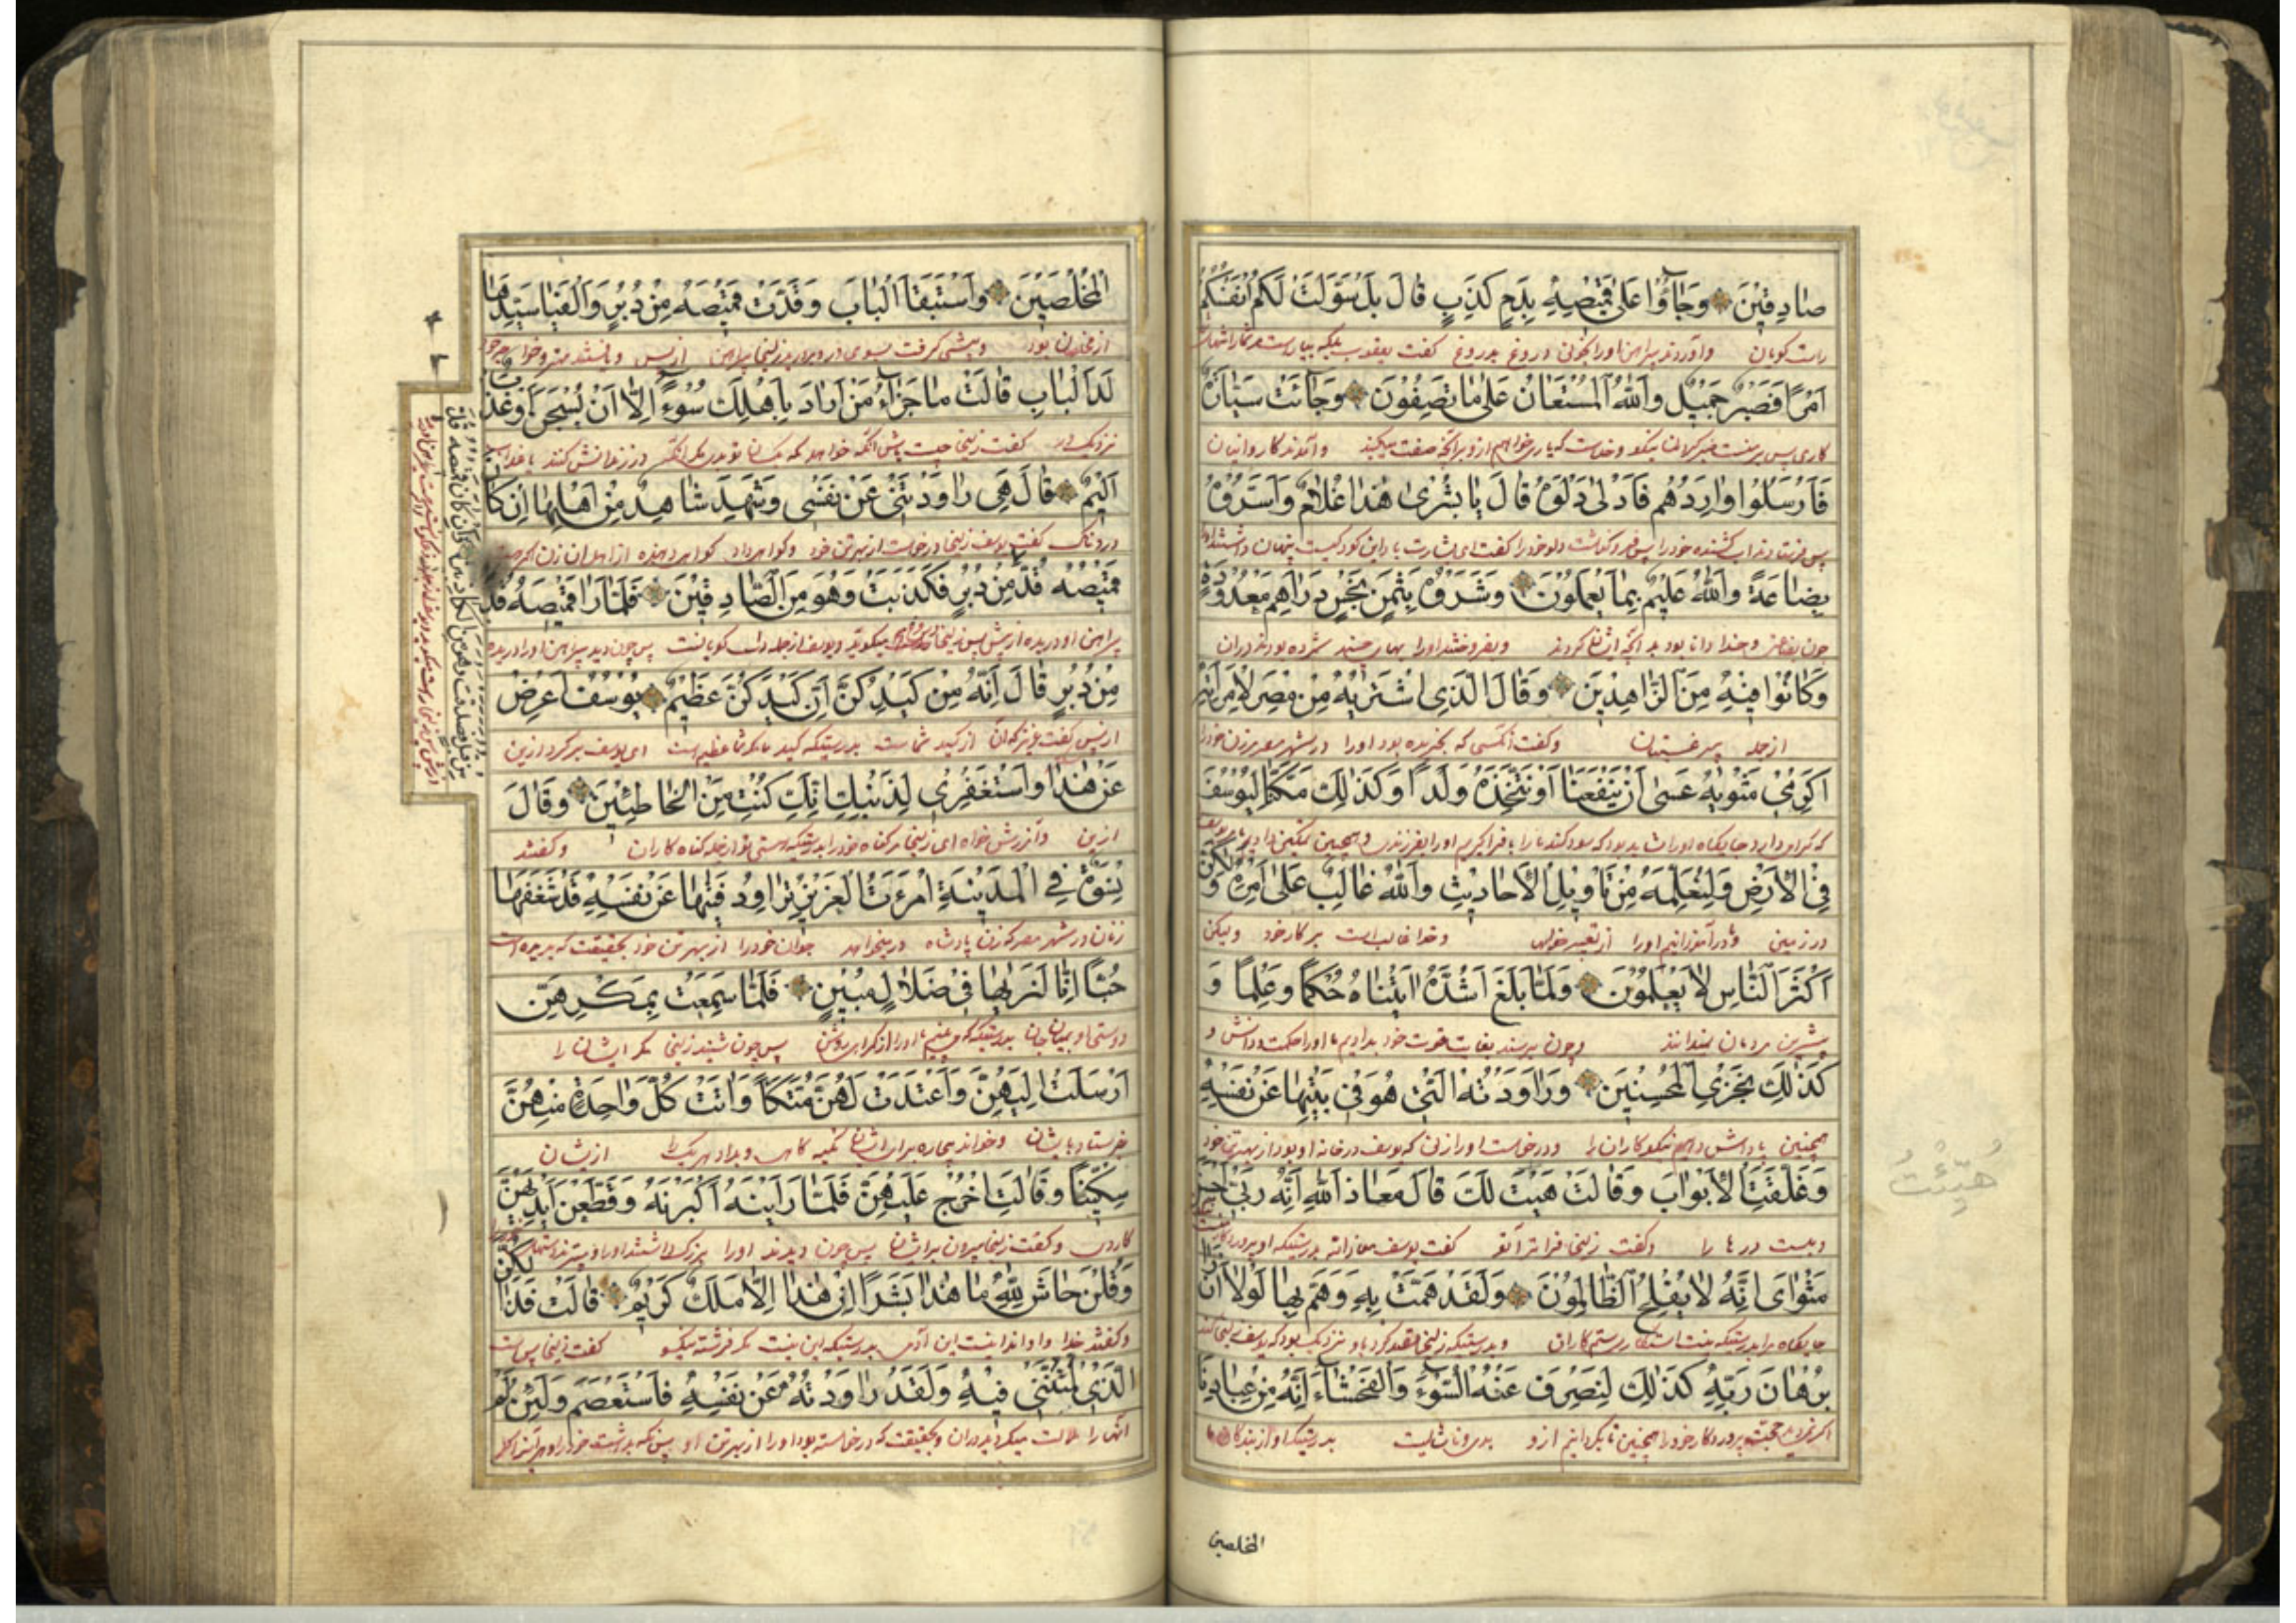 صَادِقِينَ وَجَاؤُا عَلَى قَمِيصِهِ بِدَمٍ كَذِبٍ قَالَ بَلْ سَوَّلَتْ لَكُمْ أَنْفُسُكُمْ
راست گویان و آوردند پیراهن او را بخونی دروغ بدروغ گفت یعقوب بلکه بیاراست
أَمْرًا فَصَبْرٌ جَمِيلٌ وَاللهُ الْمُسْتَعَانُ عَلَى مَا تَصِفُونَ وَجَائَتْ سَيَّارَةٌ
کاری پس نیکو و خداست که یاری خواهم ازو برآنچه صفت میکنید و آمدند کاروانیان
فَأَرْسَلُوا وَارِدَهُمْ فَأَدْلَى دَلْوَهُ قَالَ يَا بُشْرَى هَذَا غُلَامٌ وَأَسَرُّوهُ
پس فرستادند آب کشنده خود را پس فرو گذاشت دلو خود را گفت ای بشارت باد این کودکیست پنهان داشتند
بِضَاعَةً وَاللهُ عَلِيمٌ بِمَا يَعْمَلُونَ وَشَرَوْهُ بِثَمَنٍ بَخْسٍ دَرَاهِمَ مَعْدُودَةٍ
چون بضاعتی و خدا دانا بود بدآنچه ایشان کردند و بفروختند او را بهای چند شمرده بودند دران
وَكَانُوا فِيهِ مِنَ الزَّاهِدِينَ وَقَالَ الَّذِي اشْتَرَيهُ مِنْ مِصْرَ لِامْرَأَتِهِ
از جمله بی رغبتان و گفت آنکسی که بخریده بود او را در شهر مصر بزن خود را
أَكْرِمِي مَثْوَيهُ عَسَى أَنْ يَنْفَعَنَا أَوْ نَتَّخِذَهُ وَلَدًا وَكَذَلِكَ مَكَّنَّا لِيُوسُفَ
که گرامی دار جایگاه او را شاید بود که سود کند ما را یا فرا گیریم او را بفرزندی و همچنین تمکین دادیم ما یوسف
فِي الْأَرْضِ وَلِنُعَلِّمَهُ مِنْ تَأْوِيلِ الْأَحَادِيثِ وَاللهُ غَالِبٌ عَلَى أَمْرِهِ وَلَكِنَّ
در زمین و درآموزانیم او را از تعبیر خوابها و خدا غالب است بر کار خود و لیکن
أَكْثَرَ النَّاسِ لَا يَعْلَمُونَ وَلَمَّا بَلَغَ أَشُدَّهُ اتَيْنَاهُ حُكْمًا وَعِلْمًا وَ
بیشترین مردمان نمیدانند و چون برسید بغایت قوت خود بدادیم ما او را حکمت و دانش و
كَذَلِكَ نَجْزِي الْمُحْسِنِينَ وَرَاوَدَتْهُ الَّتِي هُوَ فِي بَيْتِهَا عَنْ نَفْسِهِ
همچنین پاداش دهیم نیکوکاران را و درخواست او را زنی که یوسف در خانه او بود از بهر تن خود
وَغَلَّقَتِ الْأَبْوَابَ وَقَالَتْ هَيْتَ لَكَ قَالَ مَعَاذَ اللهِ إِنَّهُ رَبِّي أَحْسَنَ
و ببست درها را و گفت زلیخا فراتر آی تو گفت یوسف معاذالله بدرستیکه او پروردگار
مَثْوَايَ إِنَّهُ لَا يُفْلِحُ الظَّالِمُونَ وَلَقَدْ هَمَّتْ بِهِ وَهَمَّ بِهَا لَوْلَا أَنْ رَأَى
جایگاه مرا بدرستیکه ستم کاران و بدرستیکه زلیخا قصد کرد باو و نزدیک بود که یوسف
بُرْهَانَ رَبِّهِ كَذَلِكَ لِنَصْرِفَ عَنْهُ السُّوءَ وَالْفَحْشَاءَ إِنَّهُ مِنْ عِبَادِنَا
اگر ندیدی حجت پروردگار خود را همچنین تا بگردانیم ازو بدی و ناشایست بدرستیکه او از بندگان
المخلصین
هَيْئَتُ
الْمُخْلَصِينَ وَاسْتَبَقَا الْبَابَ وَقَدَّتْ قَمِيصَهُ مِنْ دُبُرٍ وَأَلْفَيَا سَيِّدَهَا
از مخلصان بود و پیشی گرفت بسوی در و بدرید زلیخا پیراهن از پس و یافتند
لَدَا الْبَابِ قَالَتْ مَا جَزَاءُ مَنْ أَرَادَ بِأَهْلِكَ سُوءً إِلَّا أَنْ يُسْجَنَ أَوْ عَذَابٌ
نزدیک در گفت زلیخا چیست آنکه خواهد در زندانش کنند یا عذابی
أَلِيمٌ قَالَ هِيَ رَاوَدَتْنِي عَنْ نَفْسِي وَشَهِدَ شَاهِدٌ مِنْ أَهْلِهَا إِنْ كَانَ
دردناک گفت یوسف زلیخا درخواست از بهر تن خود و گواهی داد گواهی دهنده از اهل آن زن
قَمِيصُهُ قُدَّ مِنْ دُبُرٍ فَكَذَبَتْ وَهُوَ مِنَ الصَّادِقِينَ فَلَمَّا رَأَى قَمِيصَهُ قُدَّ
پیراهن او دریده از پس پس زلیخا میگوید و یوسف از جمله راست گویانست پس چون دید پیراهن او را دریده
مِنْ دُبُرٍ قَالَ إِنَّهُ مِنْ كَيْدِكُنَّ إِنَّ كَيْدَكُنَّ عَظِيمٌ يُوسُفُ أَعْرِضْ
از پس گفت عزیز که آن از کید شماست بدرستیکه کید شما عظیم است ای یوسف برگرد ازین
عَنْ هَذَا وَاسْتَغْفِرِي لِذَنْبِكِ إِنَّكِ كُنْتِ مِنَ الْخَاطِئِينَ وَقَالَ
ازین و آمرزش خواه ای زلیخا مر گناه خود را بدرستیکه هستی تو از جمله گناه کاران و گفتند
نِسْوَةٌ فِي الْمَدِينَةِ امْرَأَتُ الْعَزِيزِ تُرَاوِدُ فَتَيهَا عَنْ نَفْسِهِ قَدْ شَغَفَهَا
زنان در شهر مصر که زن پادشاه درمیخواهد جوان خود را از بهر تن خود بحقیقت که بریده است
حُبًّا إِنَّا لَنَرَيهَا فِي ضَلَالٍ مُبِينٍ فَلَمَّا سَمِعَتْ بِمَكْرِهِنَّ
دوستی او بمیان جان بدرستیکه می بینیم ما او را در گمراهی روشن پس چون شنید زلیخا مکر ایشان را
أَرْسَلَتْ إِلَيْهِنَّ وَأَعْتَدَتْ لَهُنَّ مُتَّكَأً وَاتَتْ كُلَّ وَاحِدَةٍ مِنْهُنَّ
بفرستاد بایشان برای ایشان تکیه گاهی و بداد هر یک را از یشان
سِكِّينًا وَقَالَتِ اخْرُجْ عَلَيْهِنَّ فَلَمَّا رَأَيْنَهُ أَكْبَرْنَهُ وَقَطَّعْنَ أَيْدِيَهُنَّ
کاردی و گفت زلیخا بیرون بر ایشان پس چون دیدند او را بزرگ داشتند او را و ببریدند دستها
وَقُلْنَ حَاشَ لِلَّهِ مَا هَذَا بَشَرًا إِنْ هَذَا إِلَّا مَلَكٌ كَرِيمٌ قَالَتْ فَذَلِكُنَّ
و گفتند خدا را این آدمی بدرستیکه این نیست مگر فرشته نیکو گفت زلیخا پس
الَّذِي لُمْتُنَّنِي فِيهِ وَلَقَدْ رَاوَدْتُهُ عَنْ نَفْسِهِ فَاسْتَعْصَمَ وَلَئِنْ لَمْ
ملامت میکردید دران و بحقیقت که درخواسته بودم او را از بهر تن او
قَمِيصُهُ قُدَّ مِنْ قُبُلٍ فَصَدَقَتْ وَهُوَ مِنَ الْكَاذِبِينَ وَإِنْ كَانَ قَمِيصُهُ قُدَّ